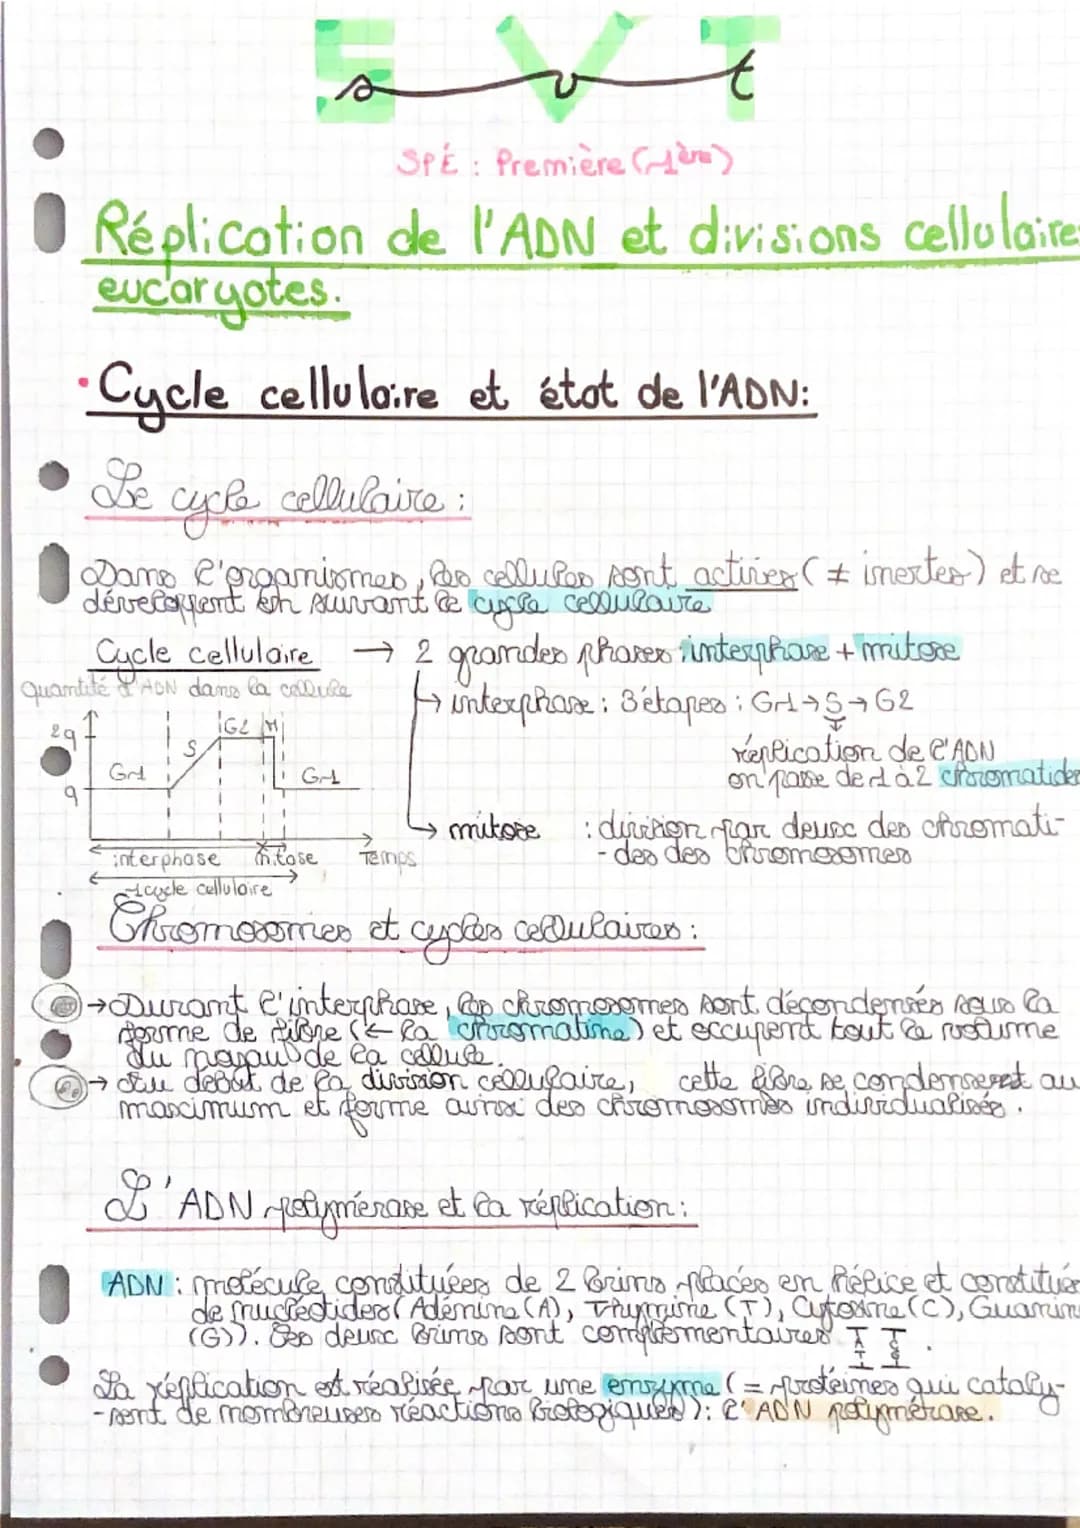 SVT
svt
SPÉ : Première (1ère)
Réplication de l'ADN et divisions cellulaires
eucaryotes.
· Cycle cellulaire et état de l'ADN:
Le cycle cellulaire :
Dans l'organismes, les cellules sont actives (≠ inertes) et se
développent en suivant le cycle cellulaire
Cycle cellulaire → 2 grandes phases interphase + mitose
Quantité d'ADN dans la cellule
↳ interphase : 3 étapes : G1 → S → G2
réplication de l'ADN
on passe de 1 à 2 chromatides
2q
q
G1
S
G2
M
G1
↳ mitose : division par deux des chromati-
-des des chromosomes
interphase mitose Temps
1 cycle cellulaire
Chromosomes et cycles cellulaires :
→ Durant l'interphase, les chromosomes sont décondensés sous la
forme de fibre (← la chromatine) et occupent tout le volume
du noyau de la cellule.
→ Au début de la division cellulaire, cette fibre se condensent au
maximum et forme ainsi des chromosomes individualisés.
L'ADN polymérase et la réplication :
ADN : molécule constituées de 2 brins placés en hélice et constitués
de nucléotides (Adénine (A), Thymine (T), Cytosine (C), Guanine
(G)). Ses deux brins sont complémentaires
La réplication est réalisée par une enzyme (= protéines qui cataly-
-sent de nombreuses réactions biologiques) : l'ADN polymérase.